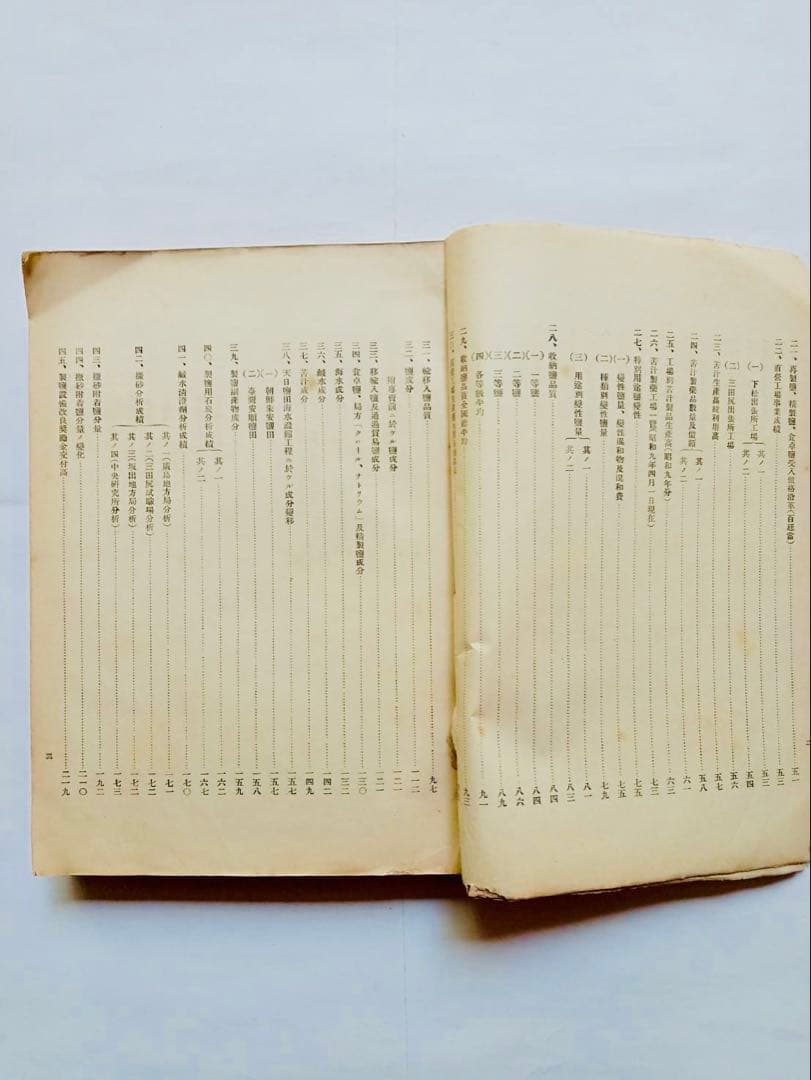 二一、再製鹽、精製鹽、食卓鹽受入價格沿革(百瓩當)……五一
二二、直營工場事業成績……五二
(一) 下松出張所工場{其ノ一……五三
其ノ二……五四
(二) 三田尻出張所工場……五六
二三、苦汁生產高竝利用高……五八
二四、苦汁製藥品數量及價額{其ノ一……六一
其ノ二……六三
二五、工場別苦汁製品生產高(昭和九年分)
二六、苦汁製藥工場一覽(昭和九年四月一日現在)……七三
二七、特別用途鹽變性……七五
(一) 變性鹽量、變性混和物及混和費……七五
(二) 種類別變性鹽量……七九
(三) 用途別變性鹽量{其ノ一……八一
其ノ二……八三
二八、收納鹽品質……八四
(一) 一等鹽……八四
(二) 二等鹽……八六
(三) 三等鹽……八九
(四) 各等級平均……九一
二九、收納鹽品質全國總平均……九三
二
三一、輸移入鹽品質……九七
三二、鹽成分……一一二
附專賣前ニ於ケル鹽成分……一二一
三三、移輸入鹽及通過貿易鹽成分……一二一
三四、食卓鹽、局方「クロール、ナトリウム」及精製鹽成分……一三〇
三五、海水成分……一三二
三六、鹹水成分……一四二
三七、苦汁成分……一四九
三八、天日鹽田海水濃縮工程ニ於ケル成分變移……一五七
(一) 朝鮮朱安鹽田……一五七
(二) 臺灣安順鹽田……一五八
三九、製鹽副產物成分……一五九
四〇、製鹽用石炭分析成績{其ノ一……一六二
其ノ二……一六七
四一、鹹水淸澄劑分析成績……一七〇
四二、撒砂分析成績{其ノ一(廣島地方局分析)……一七一
其ノ二(三田尻試驗場分析)……一七二
其ノ三(坂出地方局分析)……一七二
其ノ四(中央硏究所分析)……一七三
四三、撒砂附着鹽分量……一九二
四四、撒砂附着鹽分量ノ變化……二一〇
四五、製鹽設備改良獎勵金交付高……二一九
三